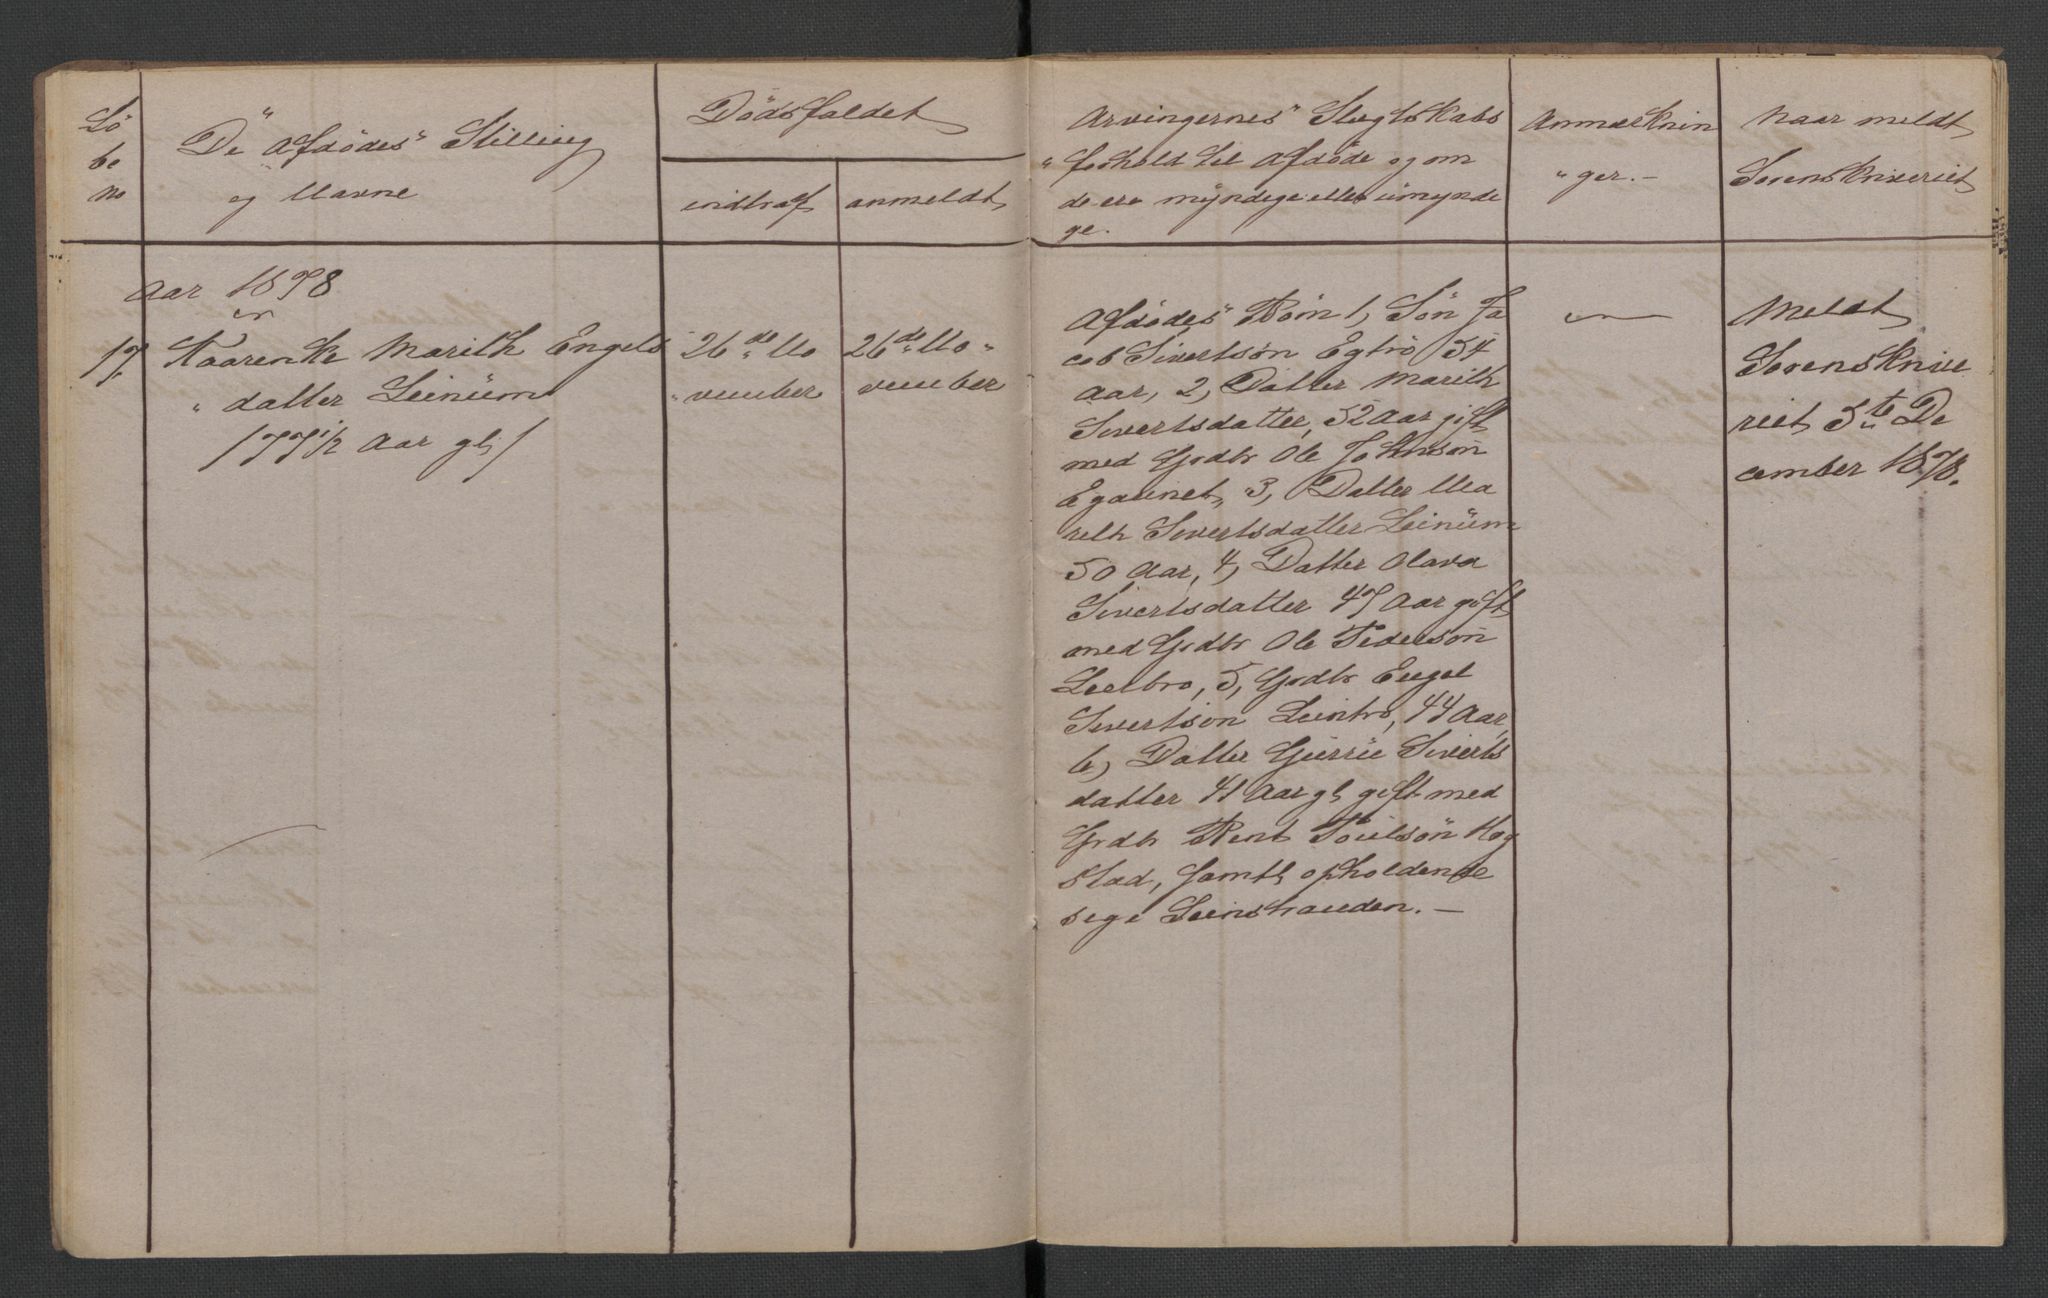 Lö
be
No
De "Afdödes" Stilling
og Navne
Dödsfaldet
indtraf
anmeldt
Arvingernes" Slegtskabs
" forhold til Afdöde og om
de ere myndige eller umyndi
ge.
Anmærknin
" ger. -
Naar meldt
Sorenskriveriet
Aar 1878
17.
Kaarenke Marith Engels
" datter Leinüm
/77 1/2 Aar gl/
26 de No
" vember
26 de No "
vember
Afdödes" Börn 1, Sön Ja
cob Sivertsön Egtrö, 54
Aar, 2, Datter Marith
Sivertsdatter, 52 Aar gift
med Grdbr Ole Johnsön
3, Datter Ma
reth Sivertsdatter Leinüm
50 Aar, 4, Datter Olava
Sivertsdatter 47 Aar gift
med Grdbr Ole Pedersön
5, Grdbr Engel
Sivertsön Leintrö, 44 Aar,
6, Datter Gürrü Siverts
datter 41 Aar gl gift med
Grdbr Bent
stad, Samtl opholdende
sig i Leinstranden. -
Meldt
Sorenskrive
riet 5te De
cember 1878.